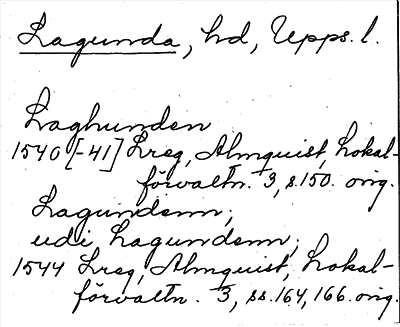 Lagunda, hd, Upps. l.
Laghunden
1540 [-41] Lreg, Almquist, Lokal-
förvaltn. 3, s. 150. orig.
Lagundenn,
udi Lagundenn,
1544 Lreg, Almquist, Lokal-
förvaltn. 3, ss. 164, 166. orig.